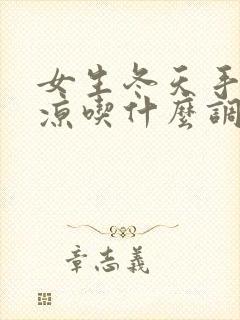 女生冬天手
涼喫什麼調
章志義